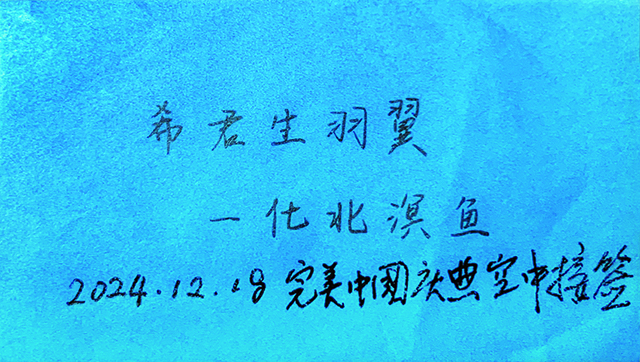 希君生羽翼
一化北溟鱼
2024.12.18 完美中國庆典空中接签